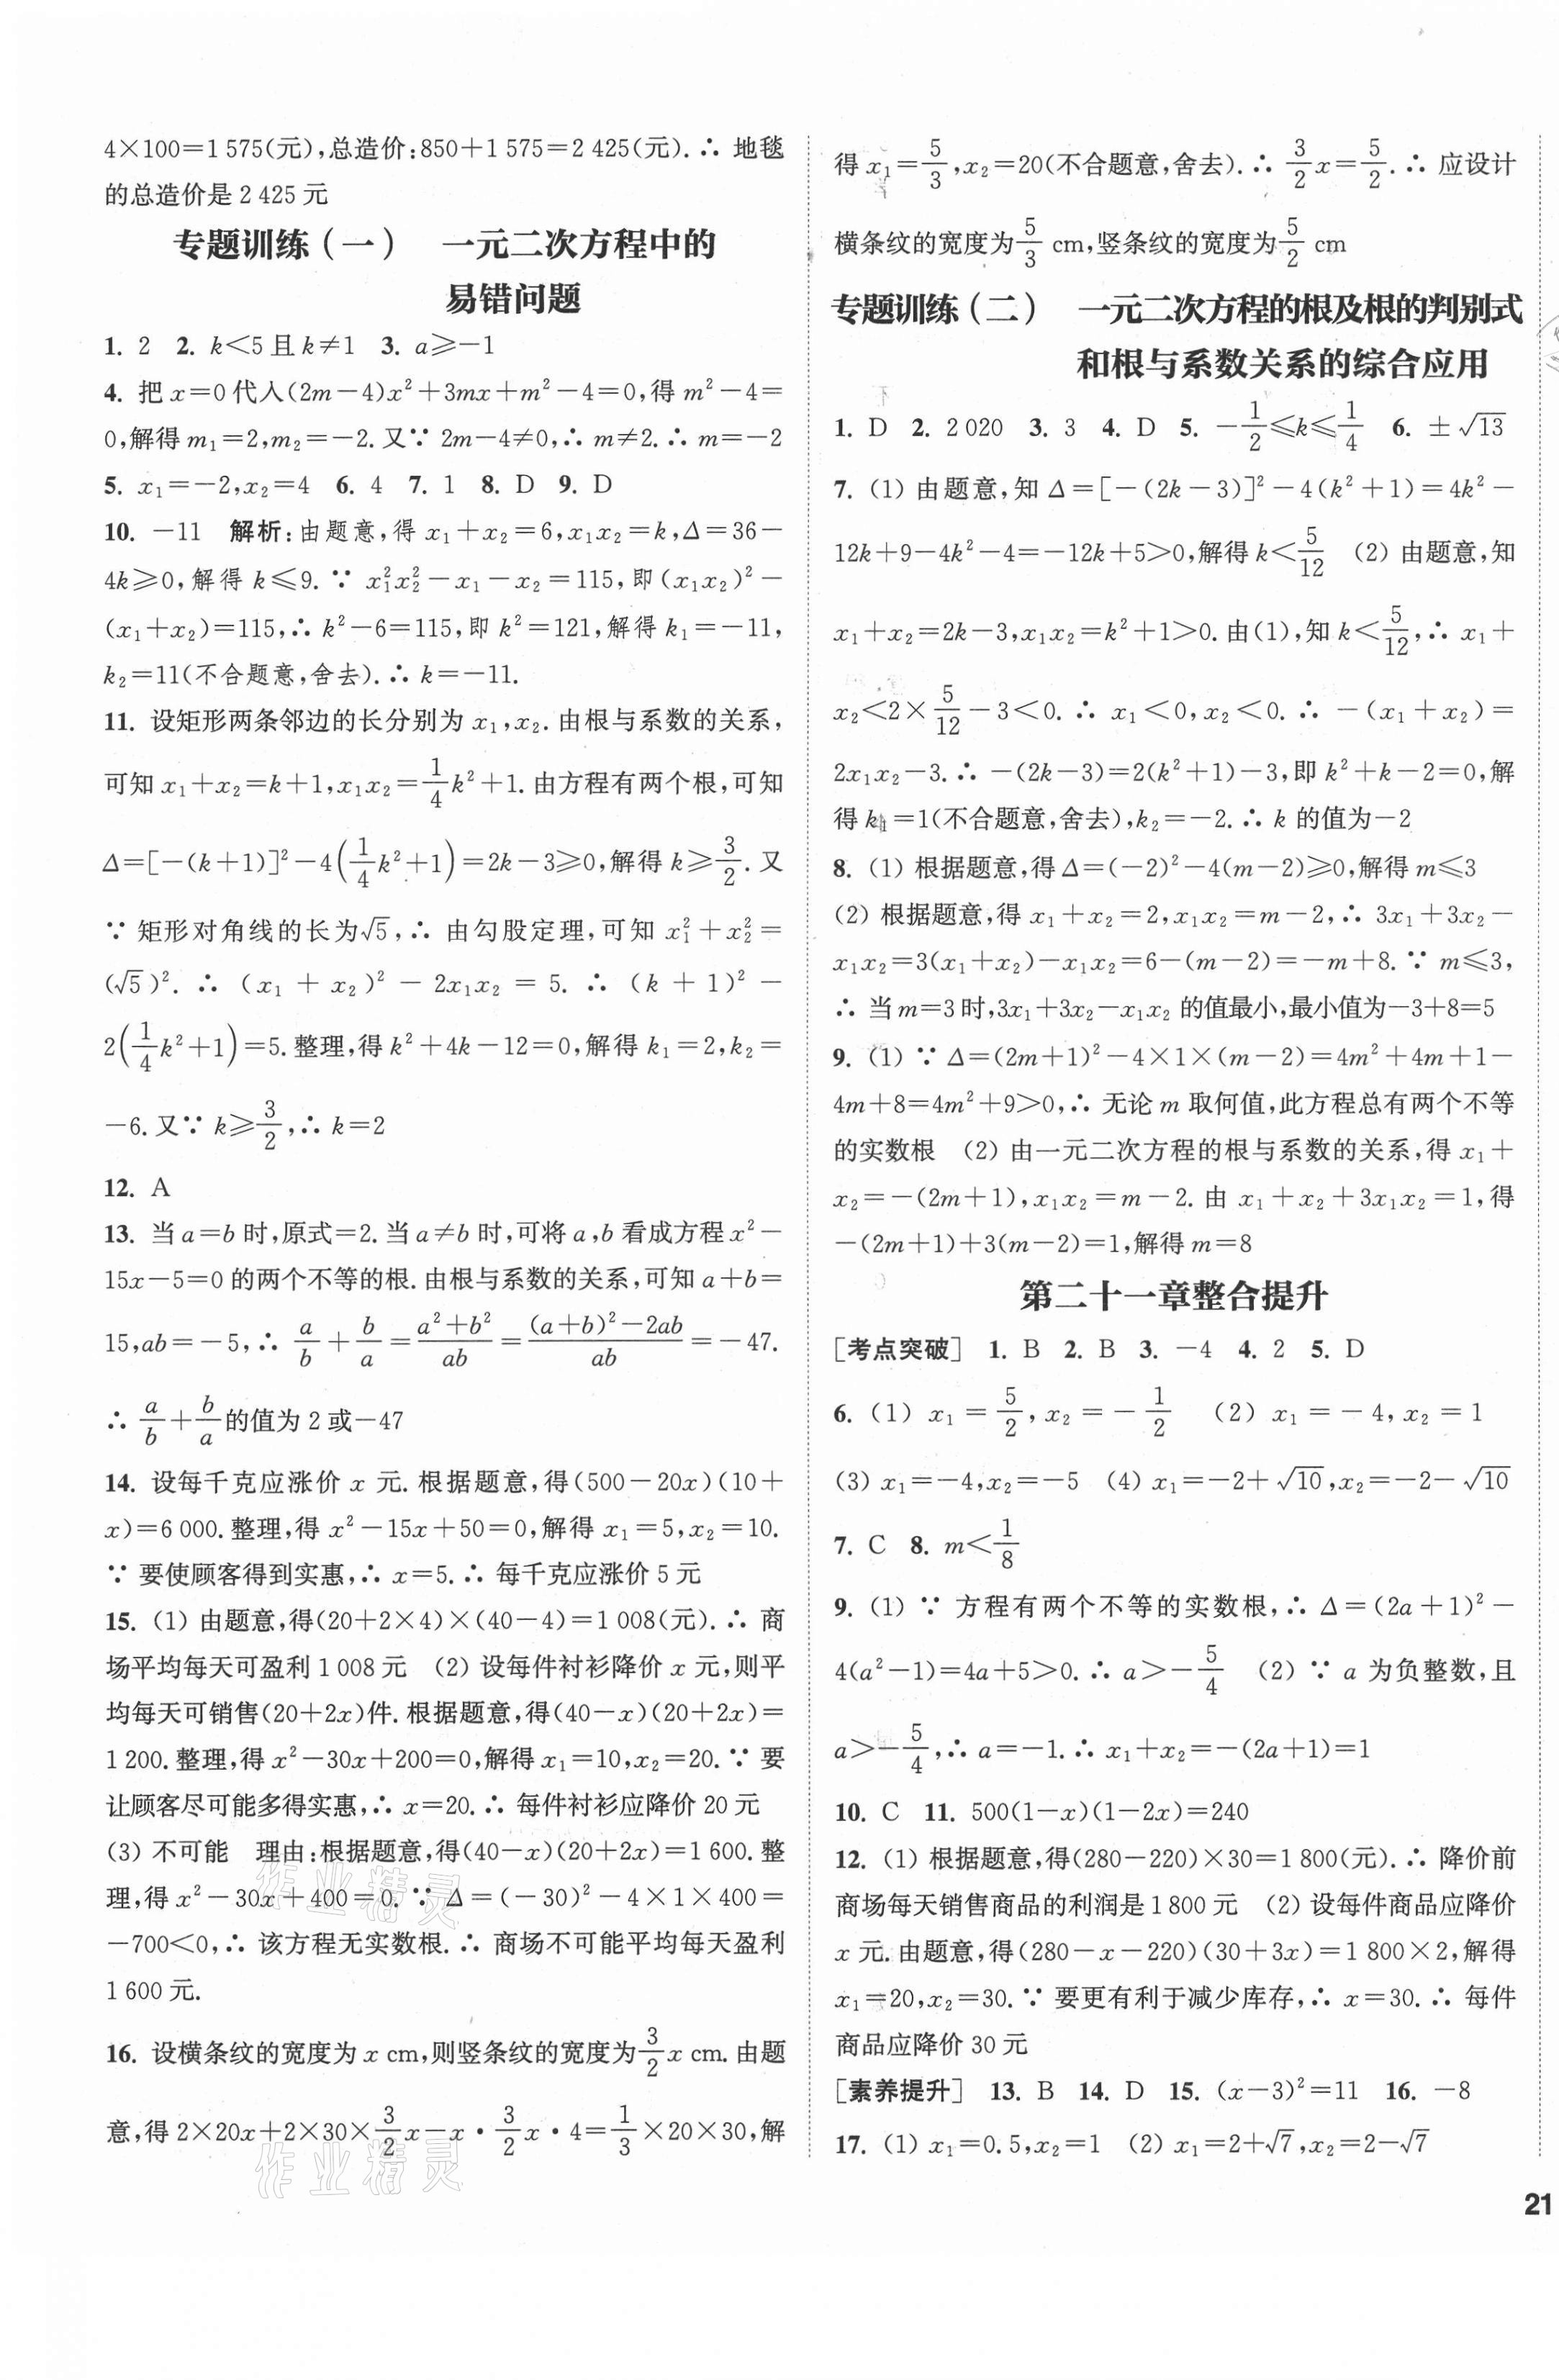 4×100=1 575(元),总造价:850+1 575=2 425(元).∴ 地毯
的总造价是 2 425 元
专题训练(一) 一元二次方程中的
易错问题
1. 2 2. k<5 且 k≠1 3. a≥-1
4. 把 x=0 代入(2m-4)x²+3mx+m²-4=0,得 m²-4=
0,解得 m₁=2,m₂=-2.又∵ 2m-4≠0,∴ m≠2.∴ m=-2
5. x₁=-2,x₂=4 6. 4 7. 1 8. D 9. D
10. -11 解析:由题意,得 x₁+x₂=6,x₁x₂=k,Δ=36-
4k≥0,解得 k≤9.∵ x₁²x₂²-x₁-x₂=115,即(x₁x₂)²-
(x₁+x₂)=115,∴ k²-6=115,即 k²=121,解得 k₁=-11,
k₂=11(不合题意,舍去).∴ k=-11.
11. 设矩形两条邻边的长分别为 x₁,x₂.由根与系数的关系,
可知 x₁+x₂=k+1,x₁x₂=1/4k²+1.由方程有两个根,可知
Δ=[-(k+1)]²-4(1/4k²+1)=2k-3≥0,解得 k≥3/2.又
∵ 矩形对角线的长为√5,∴ 由勾股定理,可知 x₁²+x₂²=
(√5)².∴ (x₁+x₂)²-2x₁x₂=5.∴ (k+1)²-
2(1/4k²+1)=5.整理,得 k²+4k-12=0,解得 k₁=2,k₂=
-6.又∵ k≥3/2,∴ k=2
12. A
13. 当 a=b 时,原式=2.当 a≠b 时,可将 a,b 看成方程 x²-
15x-5=0 的两个不等的根.由根与系数的关系,可知 a+b=
15,ab=-5,∴ a/b+b/a=(a²+b²)/ab=((a+b)²-2ab)/ab=-47.
∴ a/b+b/a的值为 2 或-47
14. 设每千克应涨价 x 元.根据题意,得(500-20x)(10+
x)=6 000.整理,得 x²-15x+50=0,解得 x₁=5,x₂=10.
∵ 要使顾客得到实惠,∴ x=5.∴ 每千克应涨价 5 元
15. (1) 由题意,得(20+2×4)×(40-4)=1 008(元).∴ 商
场平均每天可盈利 1 008 元 (2) 设每件衬衫降价 x 元,则平
均每天可销售(20+2x)件.根据题意,得(40-x)(20+2x)=
1 200.整理,得 x²-30x+200=0,解得 x₁=10,x₂=20.∵ 要
让顾客尽可能多得实惠,∴ x=20.∴ 每件衬衫应降价 20 元
(3) 不可能 理由:根据题意,得(40-x)(20+2x)=1 600.整
理,得 x²-30x+400=0.∵ Δ=(-30)²-4×1×400=
-700<0,∴ 该方程无实数根.∴ 商场不可能平均每天盈利
1 600 元.
16. 设横条纹的宽度为 x cm,则竖条纹的宽度为3/2x cm.由题
意,得 2×20x+2×30×3/2x-x·3/2x·4=1/3×20×30,解
得 x₁=5/3,x₂=20(不合题意,舍去).∴ 3/2x=5/2.∴ 应设计
横条纹的宽度为5/3 cm,竖条纹的宽度为5/2 cm
专题训练(二) 一元二次方程的根及根的判别式
和根与系数关系的综合应用
1. D 2. 2 020 3. 3 4. D 5. -1/2≤k≤1/4 6. ±√13
7. (1) 由题意,知 Δ=[-(2k-3)]²-4(k²+1)=4k²-
12k+9-4k²-4=-12k+5>0,解得 k<5/12 (2) 由题意,知
x₁+x₂=2k-3,x₁x₂=k²+1>0.由(1),知 k<5/12,∴ x₁+
x₂<2×5/12-3<0.∴ x₁<0,x₂<0.∴ -(x₁+x₂)=
2x₁x₂-3.∴ -(2k-3)=2(k²+1)-3,即 k²+k-2=0,解
得 k₁=1(不合题意,舍去),k₂=-2.∴ k 的值为-2
8. (1) 根据题意,得 Δ=(-2)²-4(m-2)≥0,解得 m≤3
(2) 根据题意,得 x₁+x₂=2,x₁x₂=m-2,∴ 3x₁+3x₂-
x₁x₂=3(x₁+x₂)-x₁x₂=6-(m-2)=-m+8.∵ m≤3,
∴ 当 m=3 时,3x₁+3x₂-x₁x₂ 的值最小,最小值为-3+8=5
9. (1) ∵ Δ=(2m+1)²-4×1×(m-2)=4m²+4m+1-
4m+8=4m²+9>0,∴ 无论 m 取何值,此方程总有两个不等
的实数根 (2) 由一元二次方程的根与系数的关系,得 x₁+
x₂=-(2m+1),x₁x₂=m-2.由 x₁+x₂+3x₁x₂=1,得
-(2m+1)+3(m-2)=1,解得 m=8
第二十一章整合提升
[考点突破] 1. B 2. B 3. -4 4. 2 5. D
6. (1) x₁=5/2,x₂=-1/2 (2) x₁=-4,x₂=1
(3) x₁=-4,x₂=-5 (4) x₁=-2+√10,x₂=-2-√10
7. C 8. m<1/8
9. (1) ∵ 方程有两个不等的实数根,∴ Δ=(2a+1)²-
4(a²-1)=4a+5>0.∴ a>-5/4 (2) ∵ a 为负整数,且
a>-5/4,∴ a=-1.∴ x₁+x₂=-(2a+1)=1
10. C 11. 500(1-x)(1-2x)=240
12. (1) 根据题意,得(280-220)×30=1 800(元).∴ 降价前
商场每天销售商品的利润是 1 800 元 (2) 设每件商品应降价
x 元.由题意,得(280-x-220)(30+3x)=1 800×2,解得
x₁=20,x₂=30.∵ 要更有利于减少库存,∴ x=30.∴ 每件
商品应降价 30 元
[素养提升] 13. B 14. D 15. (x-3)²=11 16. -8
17. (1) x₁=0.5,x₂=1 (2) x₁=2+√7,x₂=2-√7
21
作业精灵
作业精灵